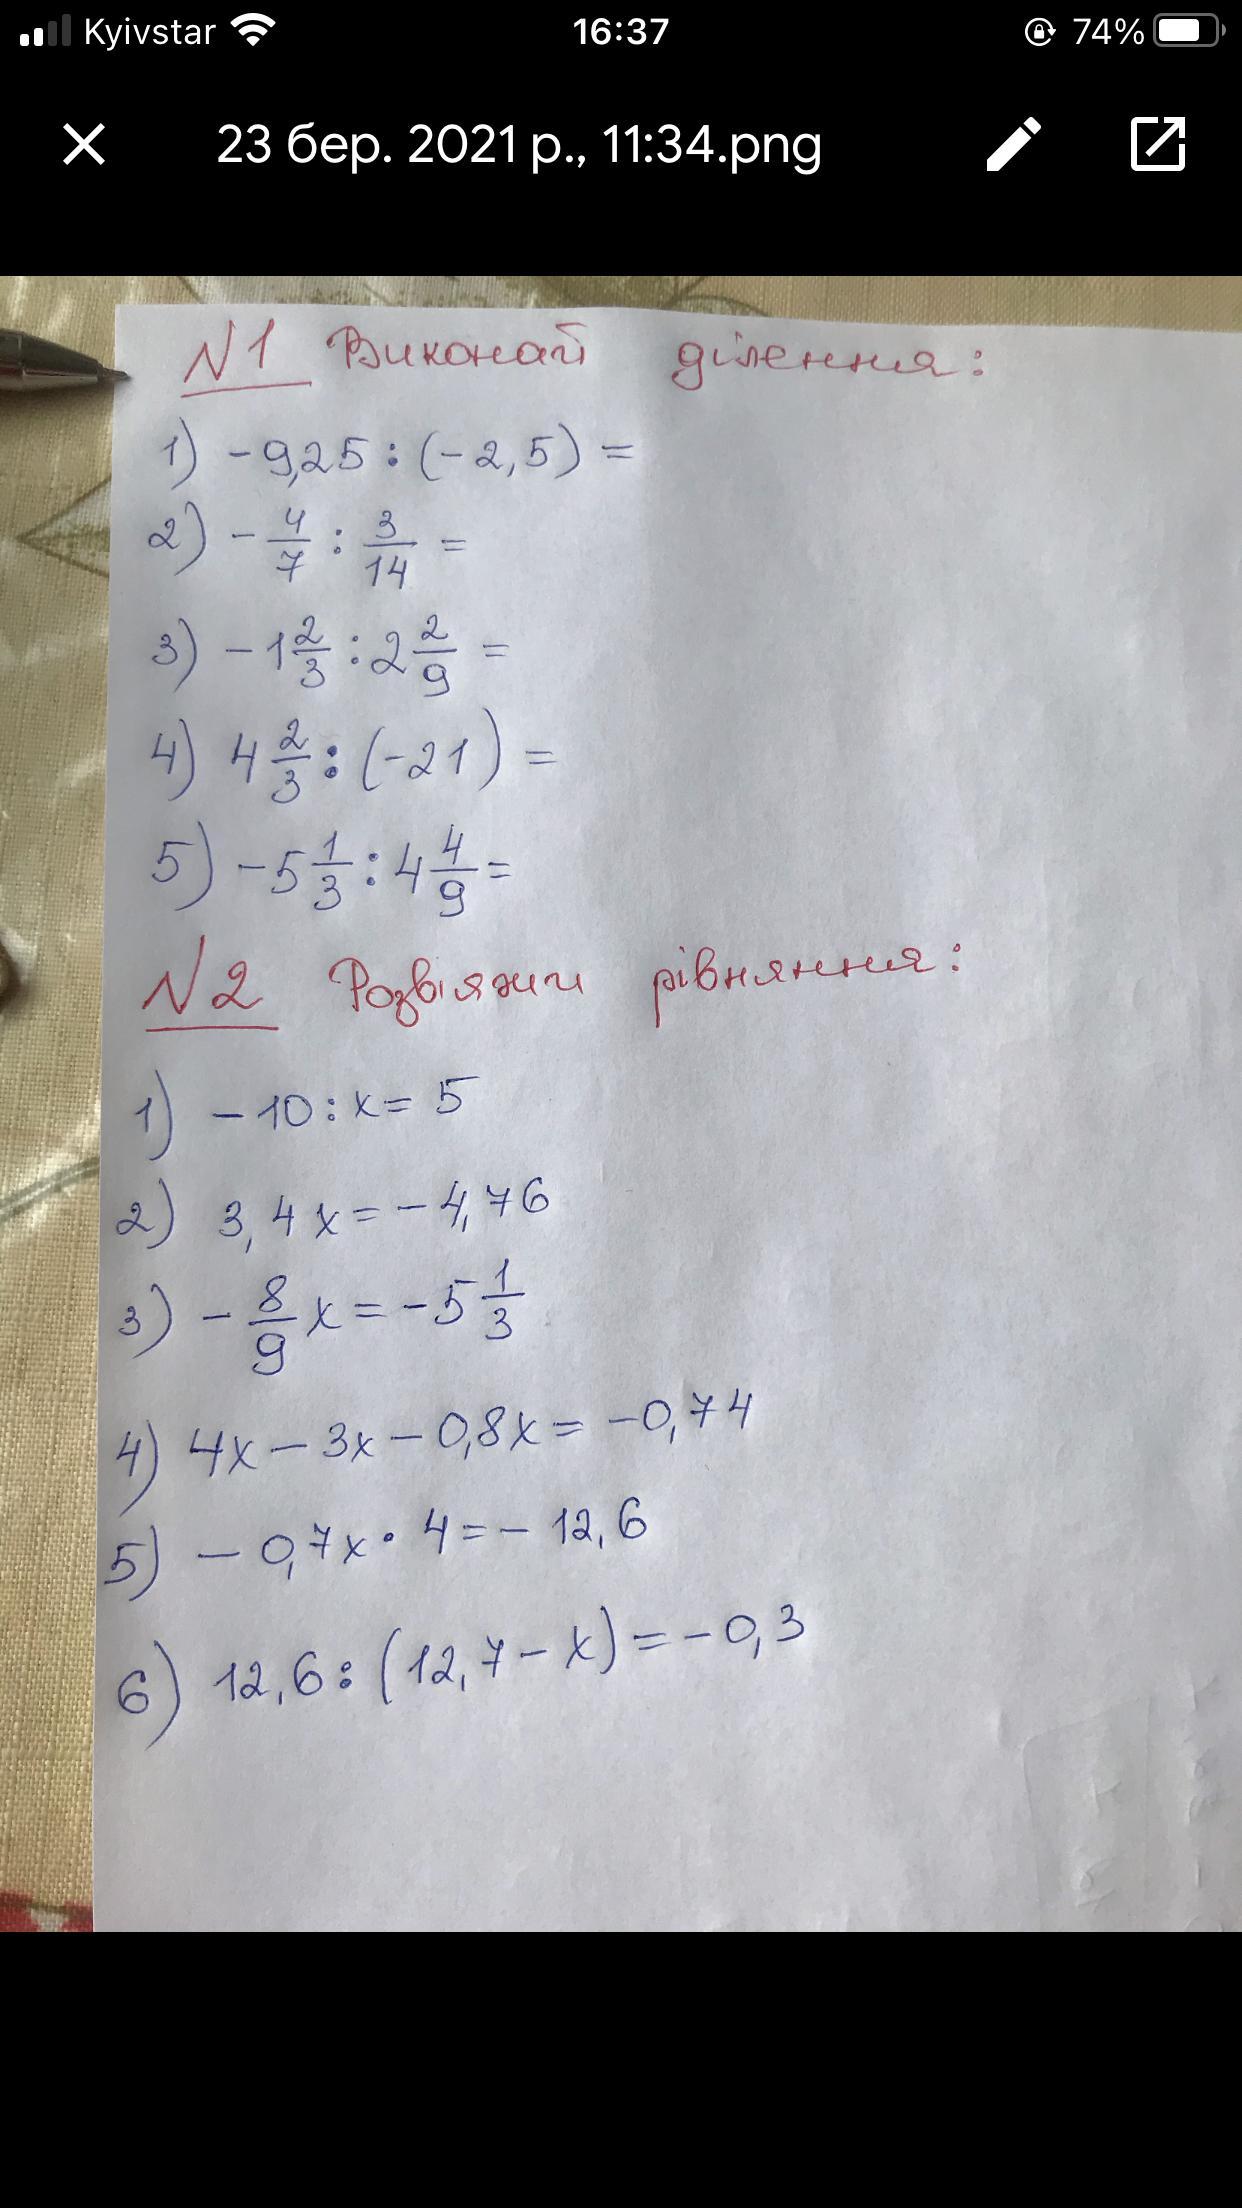 Kyivstar 16:37 74%
23 бер. 2021 р., 11:34.png
№1 Виконай ділення:
1) -9,25 : (-2,5) =
2) - 4/7 : 3/14 =
3) - 1 2/3 : 2 2/9 =
4) 4 2/3 : (-21) =
5) - 5 1/3 : 4 4/9 =
№2 Розвіяжи рівняння:
1) - 10 : x = 5
2) 3,4 x = - 4,76
3) - 8/9 x = - 5 1/3
4) 4x - 3x - 0,8x = -0,74
5) - 0,7x · 4 = - 12,6
6) 12,6 : (12,7 - x) = - 0,3